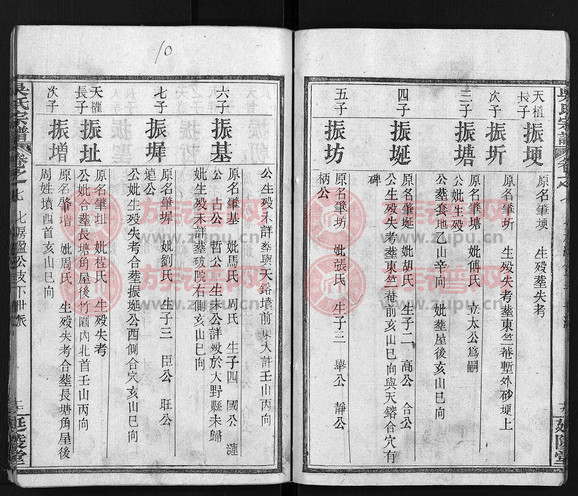 天權長子
振埂
原名肇埂 生歿葬失考
次子
振圻
原名肇圻 生歿失考葬東竺三菴塹外砂埂上
三子
振塘
原名肇塘 妣傅氏 立太公爲嗣
公葬套地乙山辛向 妣葬屋後亥山巳向
公妣生歿
四子
振埏
原名肇埏 妣胡氏 生子二 高公 合公
公生歿失考葬東竺菴前亥山巳向與天鎔合穴有碑
五子
振坊
原名肇坊 妣張氏 生子三 舉公 靜公
柄公
公生歿未詳葬與天鎔墳前東大許壬山丙向
六子
振基
原名肇基 妣馬氏 周氏 生子四 國公 漣
公 占公 哲公 生未詳歿於大野縣未歸
妣生歿未詳葬破院右側亥山巳向
七子
振墀
原名肇墀 妣劉氏 生子三 臣公 旺公
公妣生歿失考葬振埏公西側合穴亥山巳向
天權長子
振址
原名肇址 妣程氏 生歿失考
公妣合葬長塘角屋後竹園內北首壬山丙向
次子
振增
原名肇增 妣周氏 生歿失考合葬長塘角屋後
周姓墳西首亥山巳向
吳氏宗譜 卷之七 七房盈公支下世派
延陵堂
吳氏宗譜
延陵堂
10
族譜网
www.zupu.cn